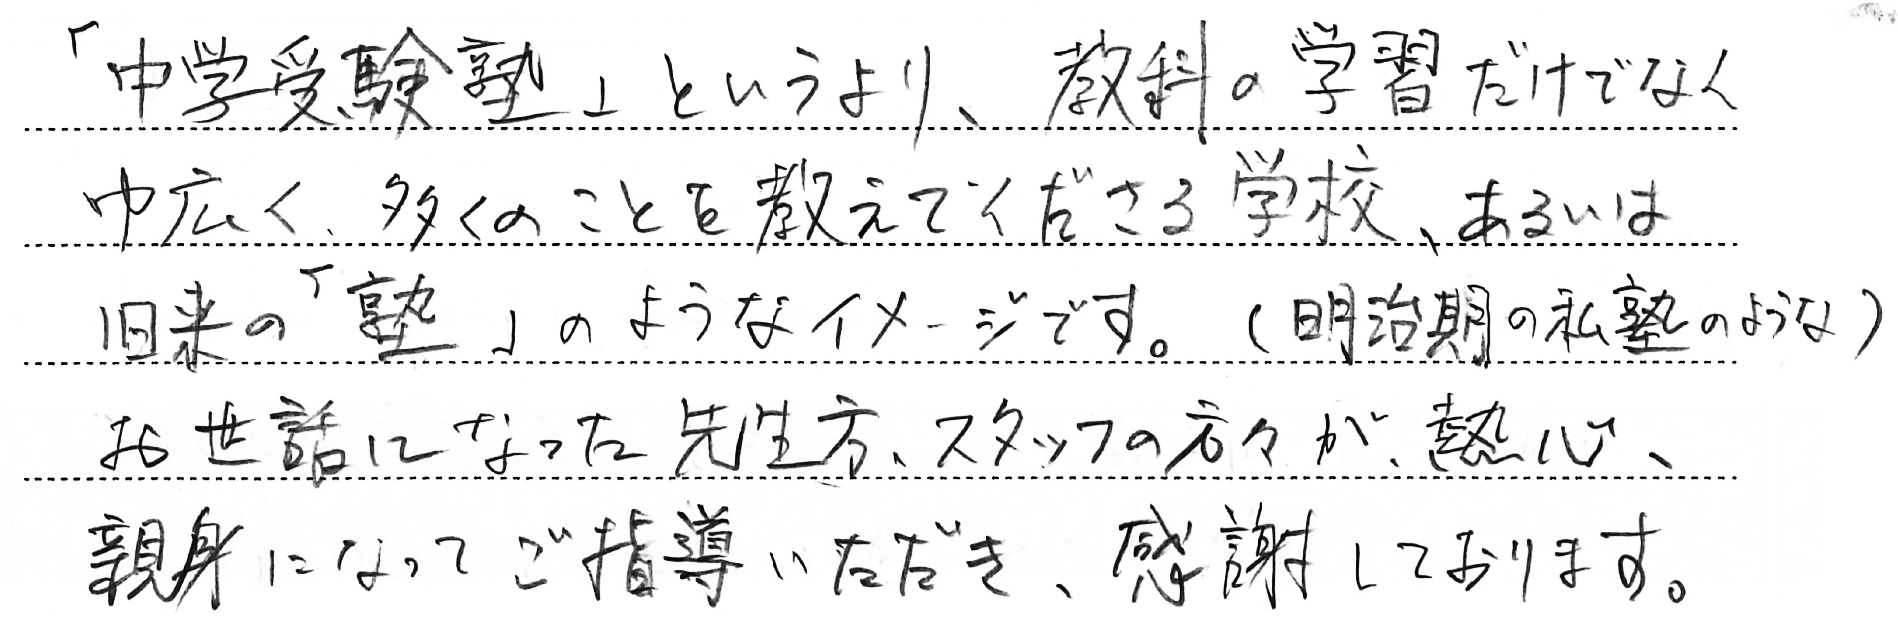 「中学受験塾」というより、教科の学習だけでなく
巾広く、多くのことを教えてくださる学校、あるいは
旧来の「塾」のようなイメージです。(明治期の私塾のような)
お世話になった先生方、スタッフの方々が、熱心、
親身になってご指導いただき、感謝しております。